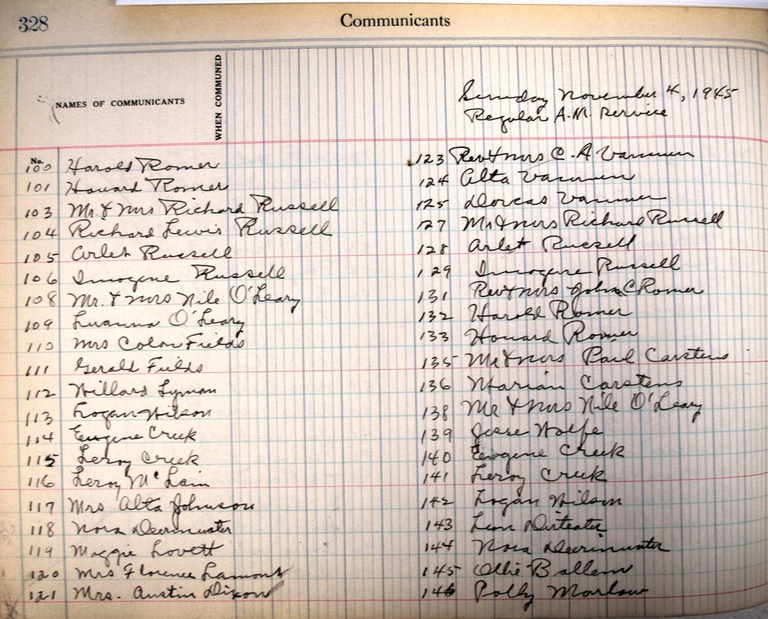 328
Communicants
NAMES OF COMMUNICANTS
WHEN COMMUNED
Sunday November 4, 1945
Regular A.M. Service
No.
100 Harold Romer
101 Howard Romer
103 Mr. & Mrs Richard Russell
104 Richard Lewis Russell
105 Arlet Russell
106 Imogene Russell
108 Mr. & Mrs Nile O'Leary
109 Luanna O'Leary
110 Mrs Colon Fields
111 Gerald Fields
112 Willard Lyman
113 Logan Wilson
114 Eugene Creek
115 Leroy Creek
116 Leroy McLain
117 Mrs Alta Johnson
118 Nora Deerinwater
119 Maggie Lovett
120 Mrs Florence Lamont
121 Mrs. Austin Dixon
123 Rev & Mrs C. A
124 Alta
125 Dorcas
127 Mr & Mrs Richard Russell
128 Arlet Russell
129 Imogene Russell
131 Rev & Mrs John C Romer
132 Harold Romer
133 Howard Romer
135 Mr & Mrs Paul Carstens
136 Marian Carstens
138 Mr & Mrs Nile O'Leary
139 Jesse Wolfe
140 Eugene Creek
141 Leroy Creek
142 Logan Wilson
143
144 Nora Deerinwater
145 Ollie
146 Polly Marlow